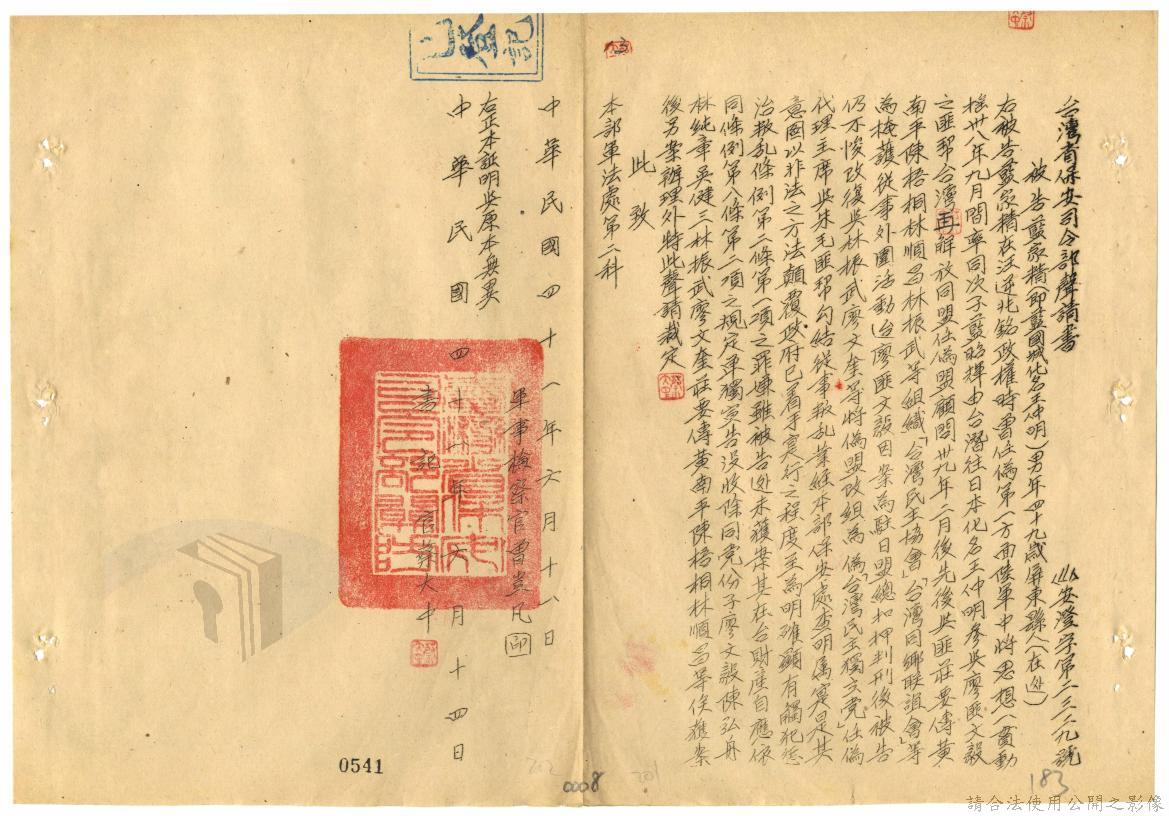 台灣省保安司令部聲請書
安澄字第二三二九號
被告藍家精(即藍國城化名王仲明)男年四十九歲屏東縣人(在逃)
右被告藍家精在汪逆兆銘政權時曾任偽第一方面陸軍中將思想一貫動
搖卅八年九月間率同次子藍昭輝由台潛往日本化名王仲明參與廖匪文毅
之匪幫台灣再解放同盟任偽盟顧問卅九年二月後先後與匪莊要傳黃
南平陳梧桐林順昌林振武等組織「台灣民主協會」台灣同鄉聯誼會等
為掩護從事外圍活動迨廖匪文毅因案為駐日盟總扣押判刑後被告
仍不悛改復與林振武廖文奎等將偽盟改組為偽「台灣民主獨立党」任偽
代理主席與朱毛匪幫勾結從事叛乱業經本部保安處查明属實是其
意圖以非法之方法顛覆政府已着手實行之程度至為明確顯有觸犯懲
治叛乱條例第二條第一項之罪嫌雖被告迯未獲案其在台財產自應依
同條例第八條第二項之規定單獨宣告没收除同党份子廖文毅陳弘舟
林純章吳健三林振武廖文奎莊要傳黃南平陳梧桐林順昌等俟獲案
後另案辦理外特此聲請裁定
此致
本部軍法處第二科
中華民國四十一年六月十八日
軍事檢察官曹豈凡印
右正本証明與原本無異
中華民國四十一年八月十四日
書記官蔡大中
0541
0008
201
202
183
請合法使用公開之影像